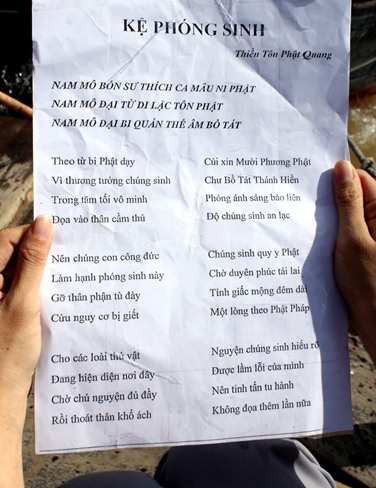 KỆ PHÓNG SINH
Thiền Tôn Phật Quang
NAM MÔ BỔN SƯ THÍCH CA MÂU NI PHẬT
NAM MÔ ĐẠI TỪ DI LẶC TÔN PHẬT
NAM MÔ ĐẠI BI QUÁN THẾ ÂM BỒ TÁT
Theo từ bi Phật dạy
Vì thương tưởng chúng sinh
Trong tăm tối vô minh
Đọa vào thân cầm thú
Nên chúng con công đức
Làm hạnh phóng sinh này
Gỡ thân phận tù đày
Cứu nguy cơ bị giết
Cho các loài thú vật
Đang hiện diện nơi đây
Chờ chú nguyện đủ đầy
Rồi thoát thân khổ ách
Cúi xin Mười Phương Phật
Chư Bồ Tát Thánh Hiền
Phóng ánh sáng bảo liên
Độ chúng sinh an lạc
Chúng sinh quy y Phật
Chờ duyên phúc tái lai
Tỉnh giấc mộng đêm dài
Một lòng theo Phật Pháp
Nguyện chúng sinh hiểu rõ
Được lầm lỗi của mình
Nên tinh tấn tu hành
Không đọa thêm lần nữa